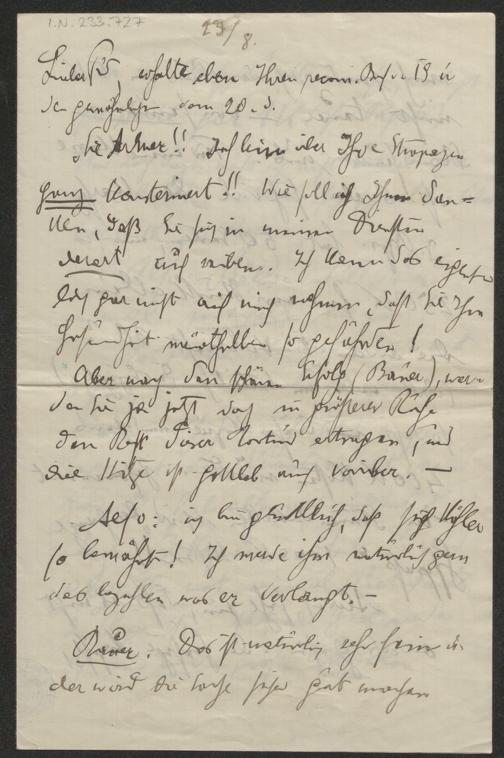 I.N. 233.727
23/8.
erhalte eben Ihren recom. Brief v. 19 u
den gewöhnlichen vom 20. d.
Sie Armer!! Ich bin über Ihre Strapazen
ganz konsterniert!! Wie soll ich Ihnen dan=
ken, daß Sie sich in meinen Diensten
derart aufreiben. Ich kann das eigent
lich gar nicht auf mich nehmen, daß Sie Ihre
Gesundheit meinethalben so gefährden!
Aber nach den schönen Erfolg (Bauer), wer
den Sie ja jetzt doch in größerer Ruhe
den Rest dieser Tortur ertragen, und
die Hitze ist gottlob auch vorüber. —
Also: ich bin glücklich, daß sich Köhler
so bewährt! Ich werde ihm natürlich gern
das bezahlen was er verlangt. —
Bauer. Das ist natürlich sehr fein u
der wird die Sache sicher gut machen